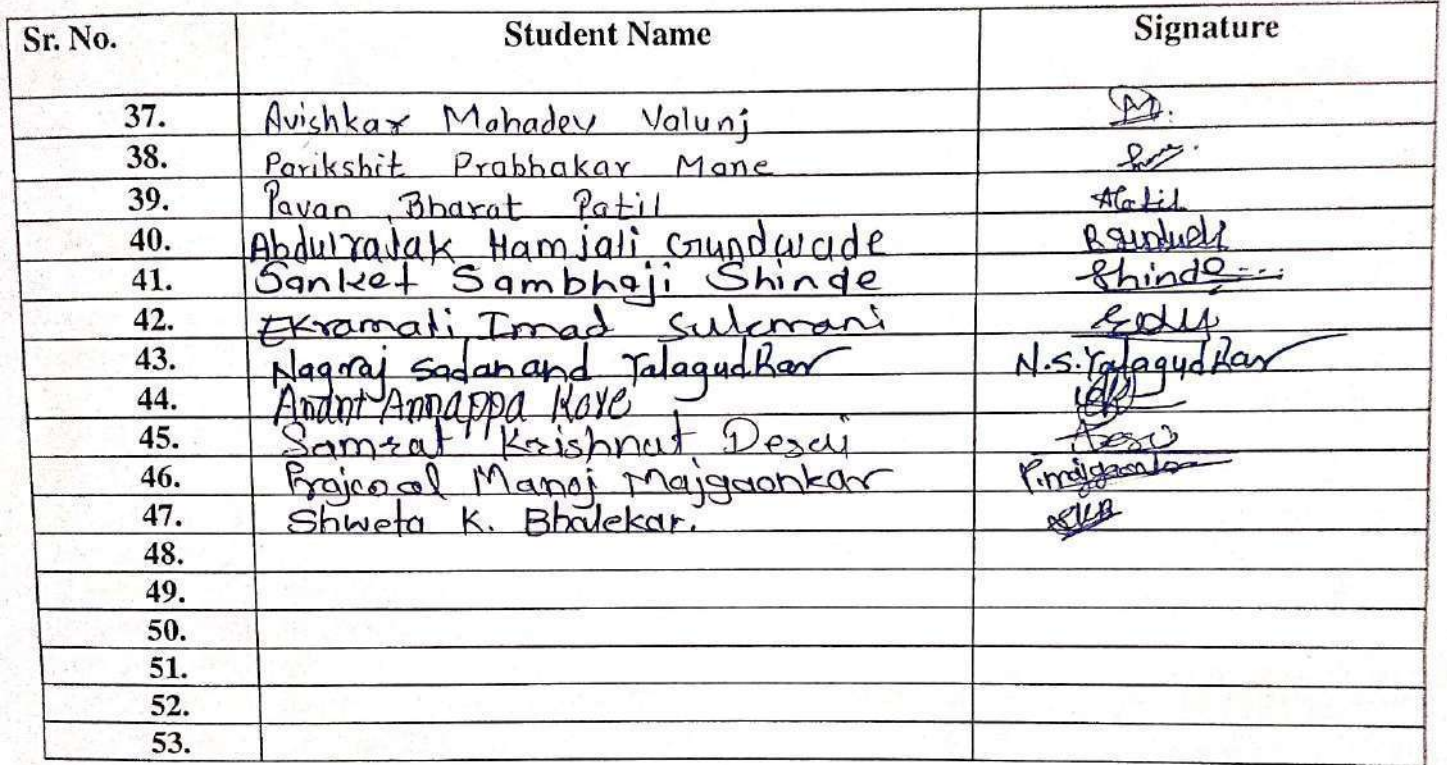 Sr. No. Student Name Signature
37. Avishkar Mahadev Valunj
38. Parikshit Prabhakar Mane
39. Pavan Bharat Patil
40. Abdulrajak Hamjali Gundwade
41. Sanket Sambhaji Shinde Shinde
42. Ekramali Imad Sulemani
43. Nagraj Sadanand Yalagudkar N.S.Yalagudkar
44. Anant Annappa Kore
45. Samrat Krishnat Desai
46. Manoj Majgaonkar P.majgaonkar
47. Shweta K. Bhalekar. SKB
48.
49.
50.
51.
52.
53.